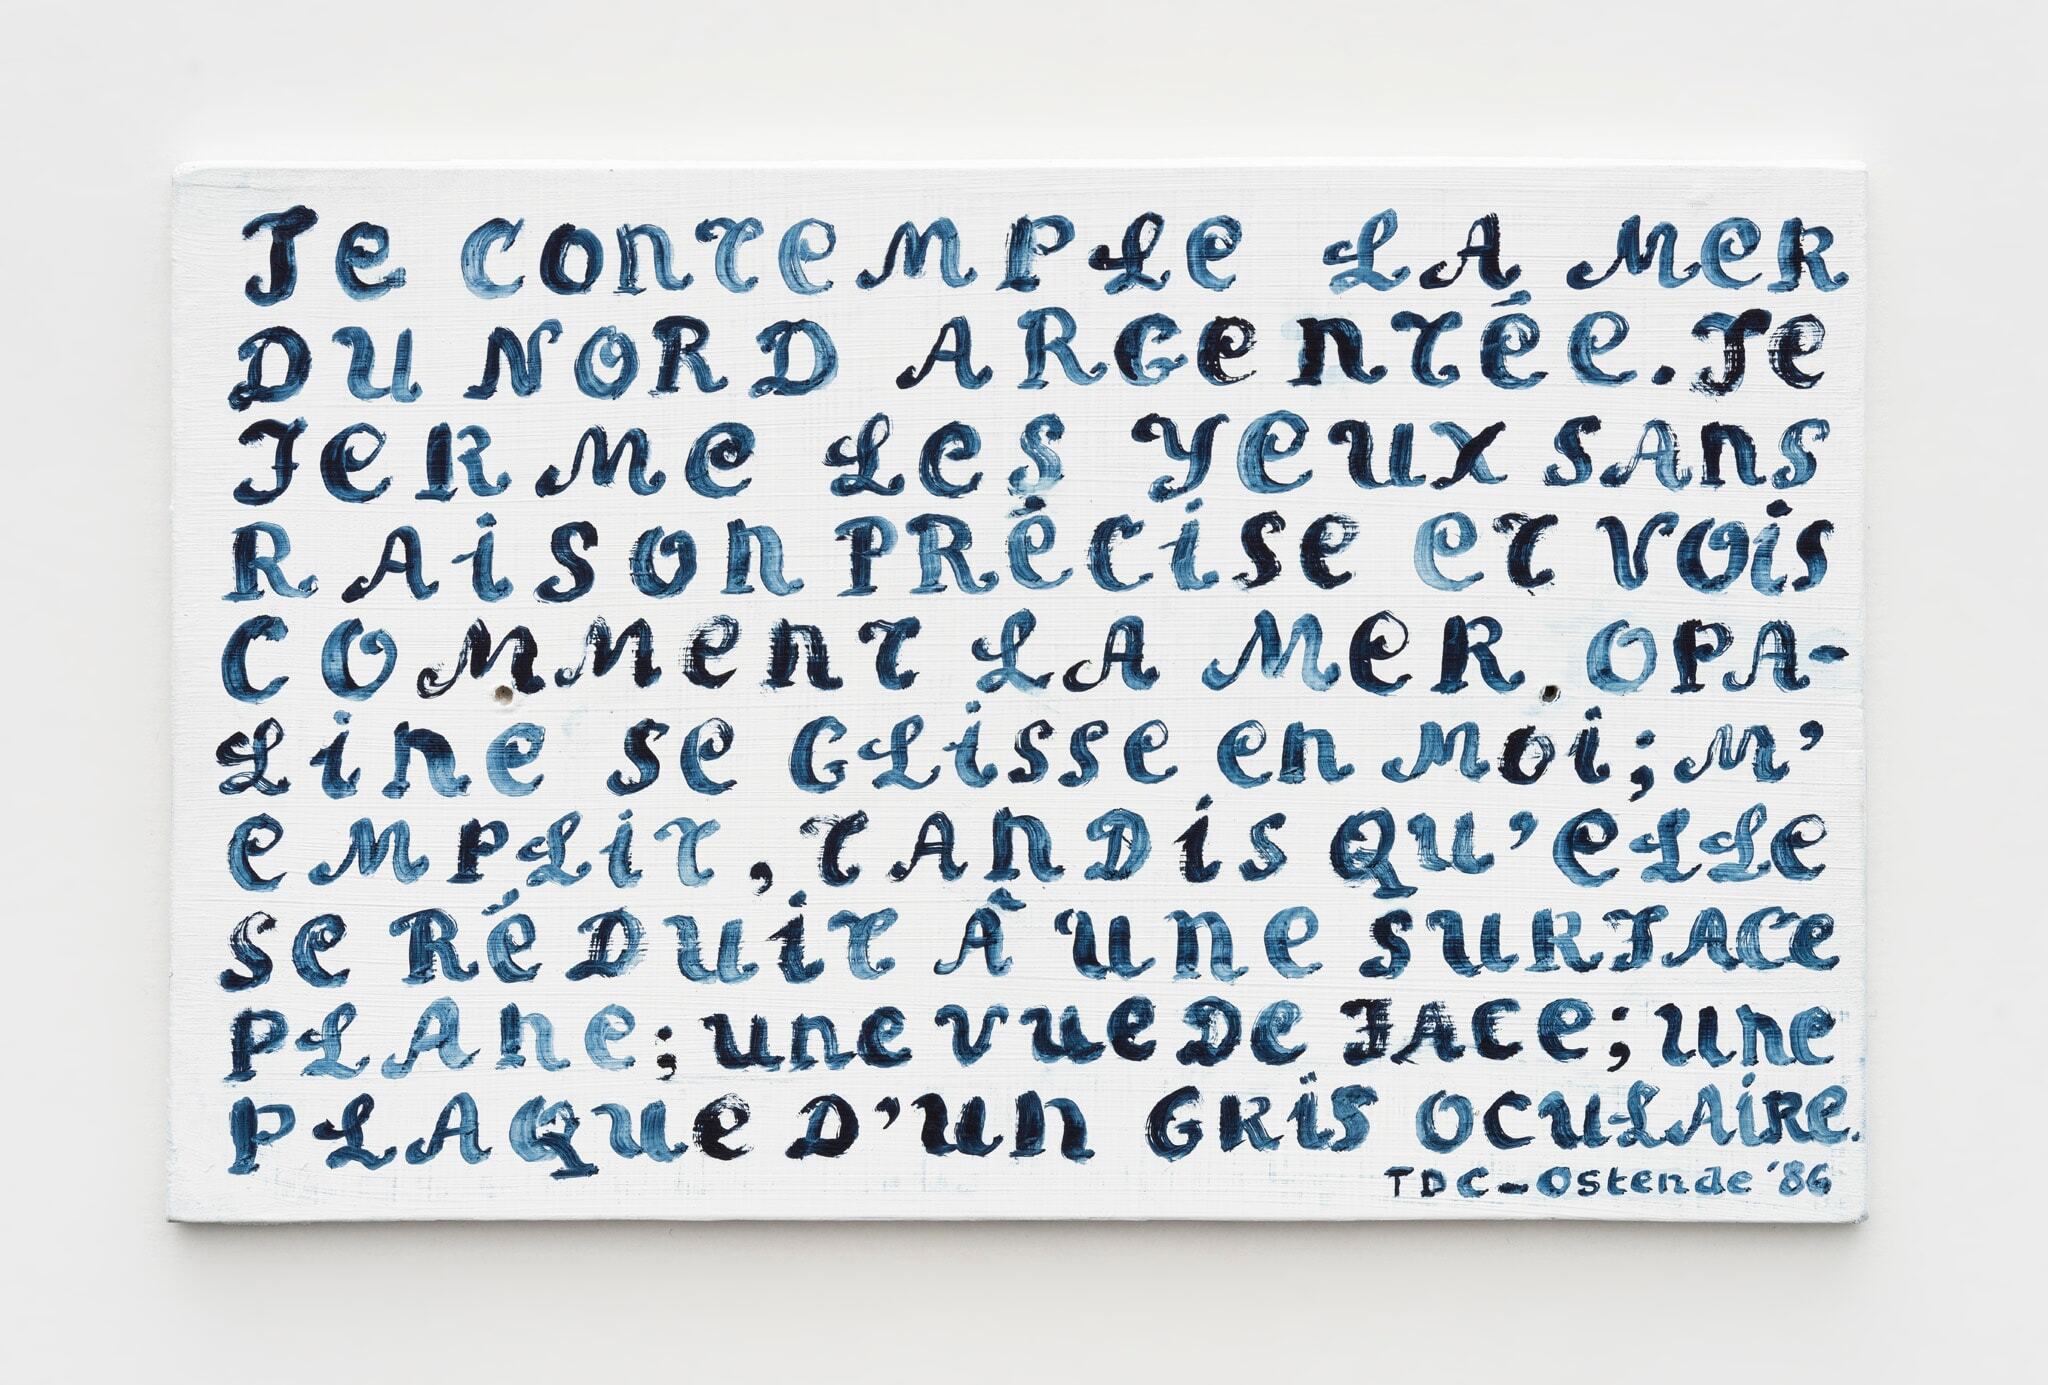 Je contemple la mer
du nord argentée. Je
ferme les yeux sans
raison précise et vois
comment la mer opa-
line se glisse en moi; m'
emplit, tandis qu'elle
se réduit â une surface
plane; une vue de face; une
plaque d'un grïs oculaire.
TDC-Ostende '86